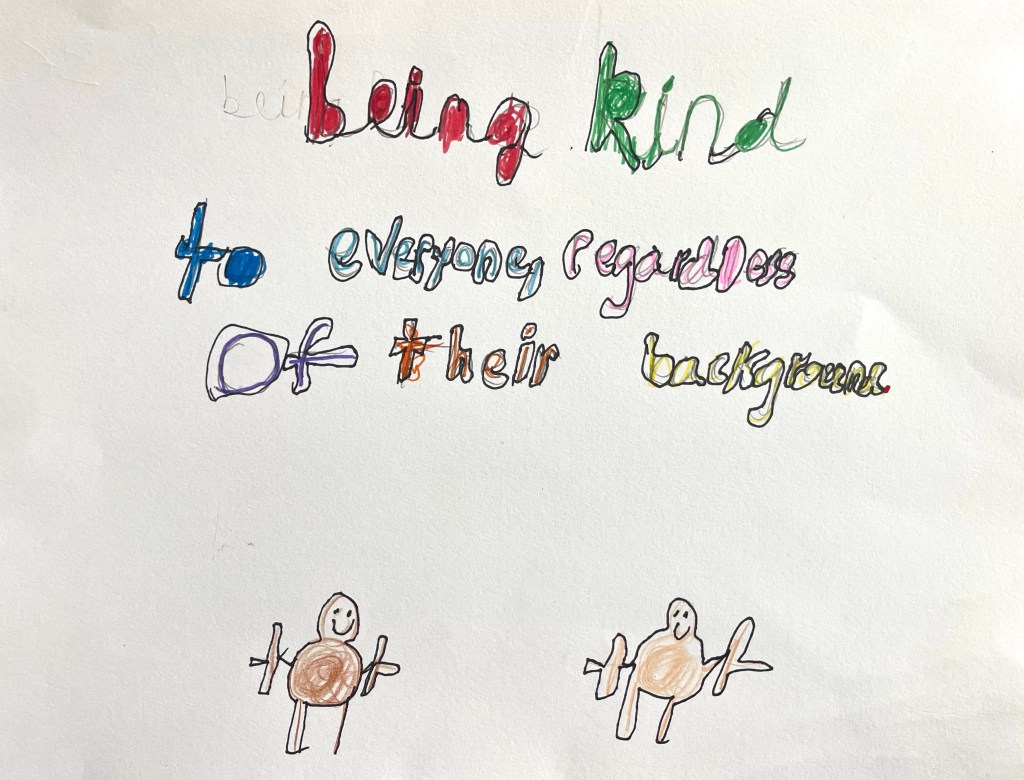 being kind
to everyone, regardless
Of their background.